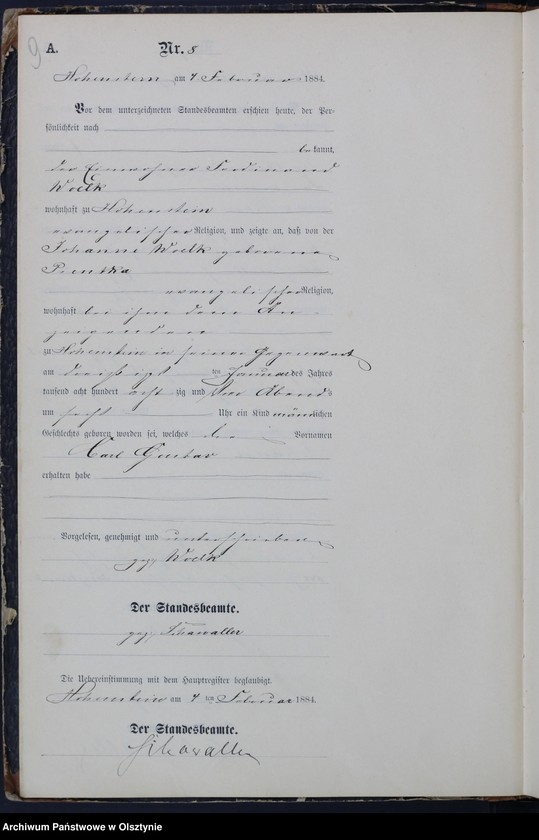 9
A.
Nr. 8
Hohenstein am 7 Februar 1884.
Vor dem unterzeichneten Standesbeamten erschien heute, der Per-
sönlichkeit nach
be kannt,
der Einwohner Ferdinand
Woelk
wohnhaft zu Hohenstein
evangelischer Religion, und zeigte an, daß von der
Johanne Woelk geborene
evangelischer Religion,
wohnhaft bei ihm dem An-
zeigenden
zu Hohenstein in seiner Gegenwart
am dreißigst ten Januar des Jahres
tausend acht hundert acht zig und vier Abends
um sechs Uhr ein Kind männlichen
Geschlechts geboren worden sei, welches die Vornamen
Carl Gustav
erhalten habe
Vorgelesen, genehmigt und unterschrieben
gez. Woelk
Der Standesbeamte.
gez. Schawaller
Die Uebereinstimmung mit dem Hauptregister beglaubigt.
Hohenstein am 7 ten Februar 1884.
Der Standesbeamte.
Schawaller
Archiwum Państwowe w Olsztynie